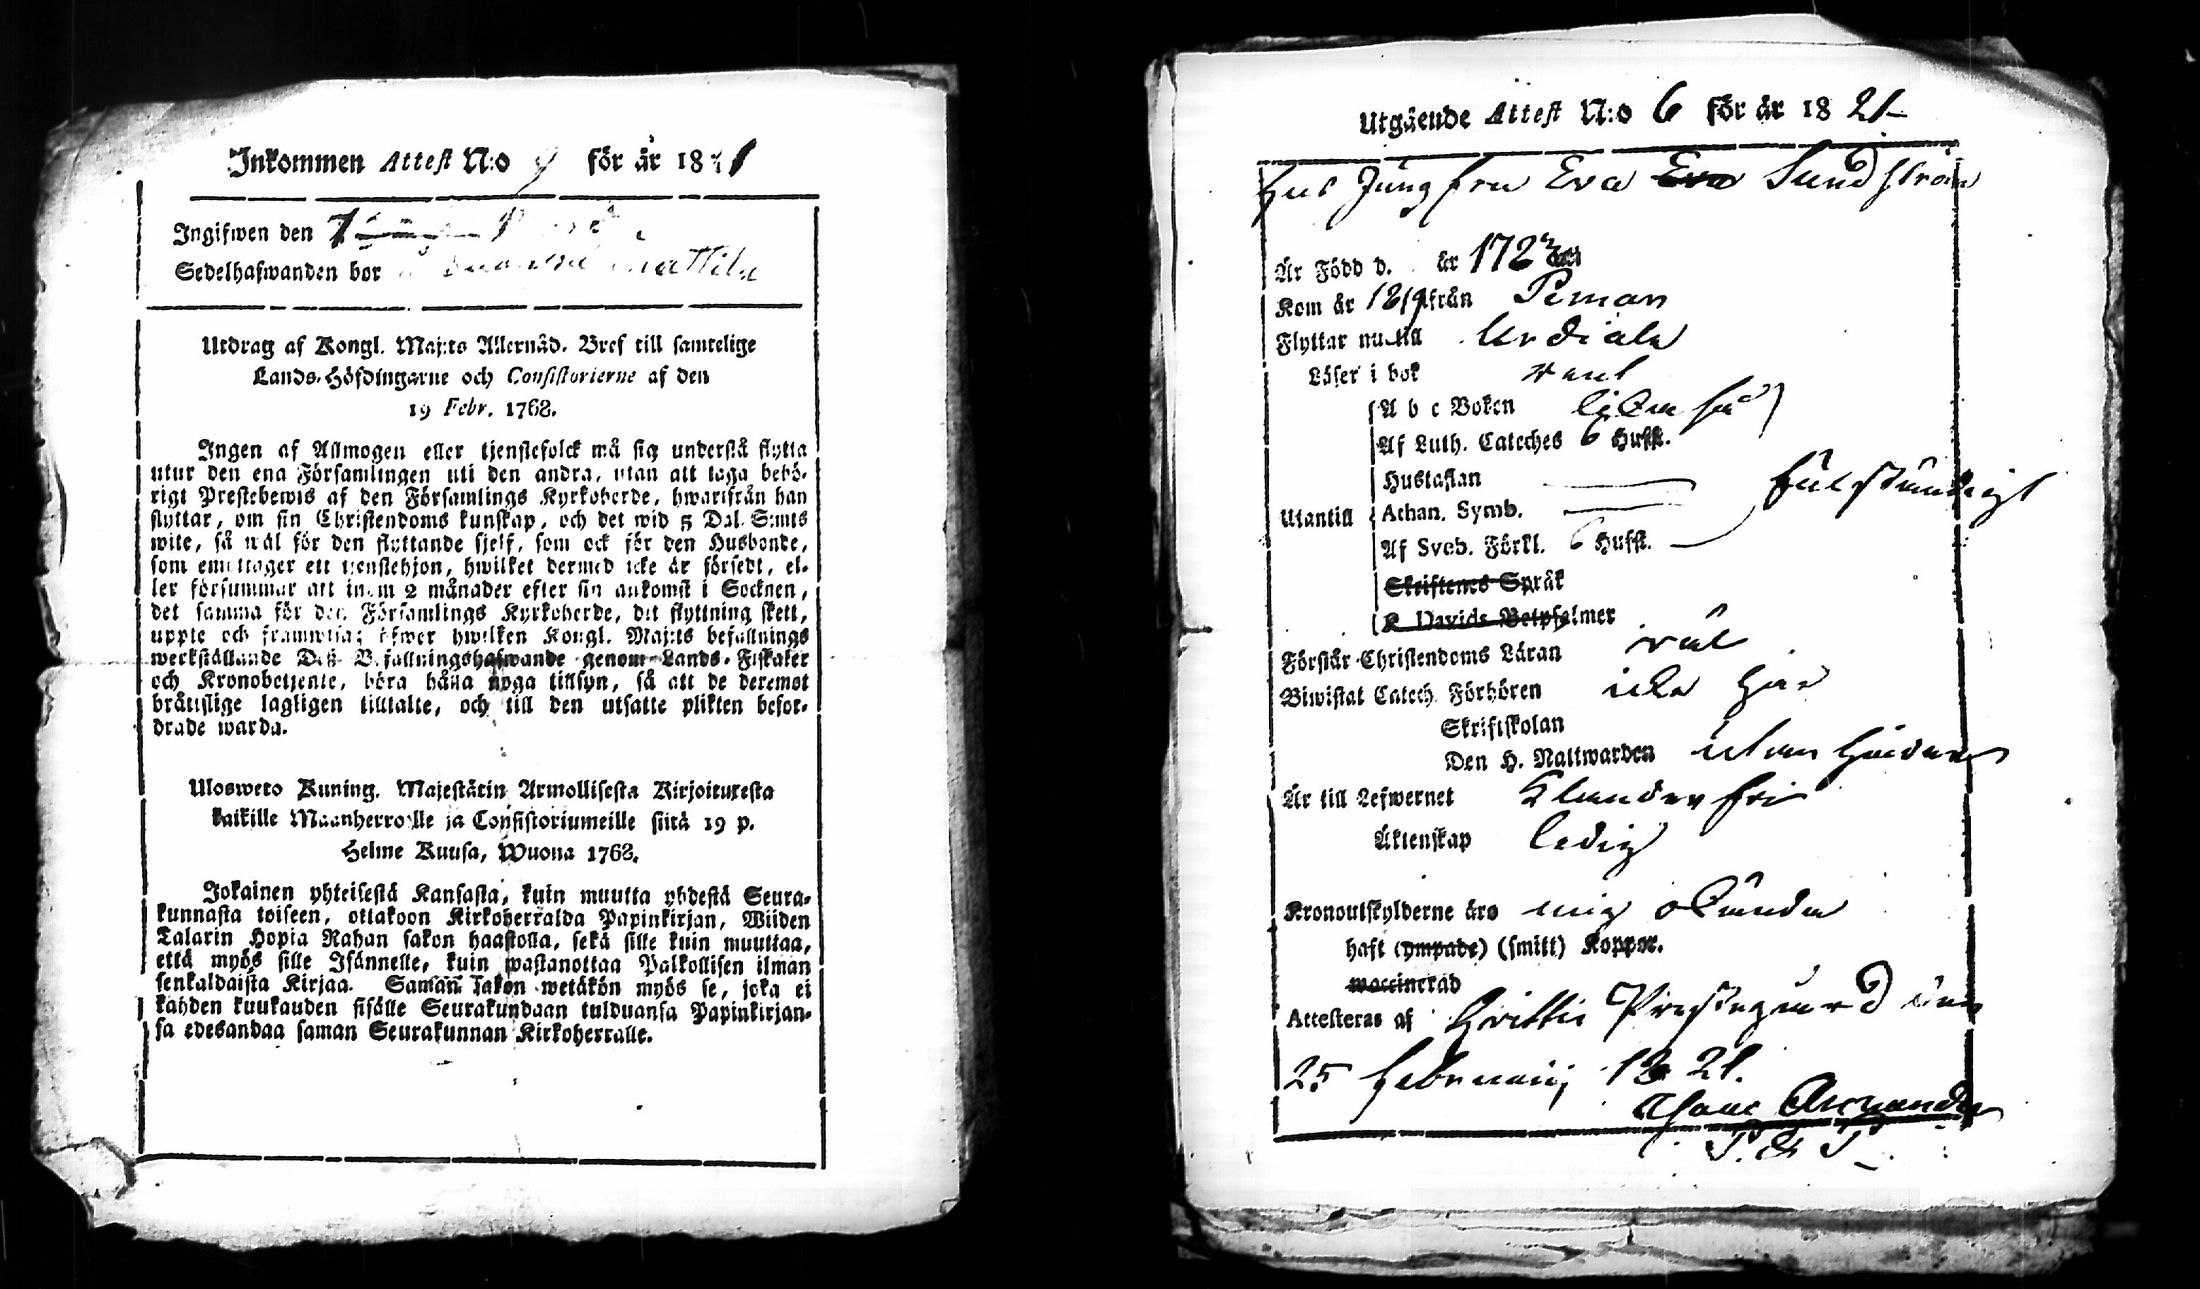 Inkommen Attest N:o 9 för år 1821
Ingifwen den 7
Sedelhafwanden bor
Utdrag af Kongl. Maj:ts Allernåd. Bref till samtelige
Lands-Höfdingarne och Consistorierne af den
19 Febr. 1768.
Ingen af Allmogen eller tjenstefolck må sig understå flytta
utur den ena Församlingen uti den andra, utan att taga behö-
rigt Prestebewis af den Församlings Kyrkoherde, hwarifrån han
flyttar, om sin Christendoms kunskap, och det wid 5 Dal. S:mts
wite, så wäl för den flyttande sjelf, som ock för den Husbonde,
som emottager ett tjenstehjon, hwilket dermed icke är försedt, el-
ler försummar att inom 2 månader efter sin ankomst i Socknen,
det samma för den Församlings Kyrkoherde, dit flyttning skett,
uppte och framwisa; öfwer hwilken Kongl. Maj:ts befallnings
werkställande Deß Befallningshafwande genom Lands-Fiskaler
och Kronobetjente, böra hålla noga tillsyn, så att de deremot
bråttslige lagligen tilltalte, och till den utsatte plikten befor-
drade warda.
Ulosweto Kuning. Majestätin Armollisesta Kirjoituxesta
kaikille Maanherroille ja Consistoriumeille siitä 19 p.
Helme Kuusa, Wuona 1768.
Jokainen yhteisestä Kansasta, kuin muutta yhdestä Seura-
kunnasta toiseen, ottakoon Kirkoherralda Papinkirjan, Wiiden
Talarin Hopia Rahan sakon haastolla, sekä sille kuin muuttaa,
että myös sille Isännelle, kuin wastanottaa Palkollisen ilman
senkaldaista Kirjaa. Samañ Sakon wetäkön myös se, joka ei
kahden kuukauden sisälle Seurakundaan tulduansa Papinkirjan-
sa edesandaa saman Seurakunnan Kirkoherralle.
Utgående Attest N:o 6 för år 1821
Hus Jungfru Eva Eva Sundström
Är Född d. är 172
Kom år 1819 från Pemar
Flyttar nu till Urdiala
Läser i bok rent
A b c Boken lika så
Af Luth. Cateches 6 Hufst.
Hustaflan fulständigt
Utantill Athan. Symb.
Af Sveb. Förkl. 6 Hufst.
Skriftenes Språk
K. Davids Botpsalmer
Förstår Christendoms Läran väl
Biwistat Catech. Förhören icke här
Skriftskolan
Den H. Nattwarden utan hinder
Är till Lefwernet Klanderfri
Äktenskap ledig
Kronoutskylderne äro mig okända
haft (ympade) (smitt) Koppor.
waccinerad
Attesteras af Hvittis Prestegård den
25 februarij 1821.